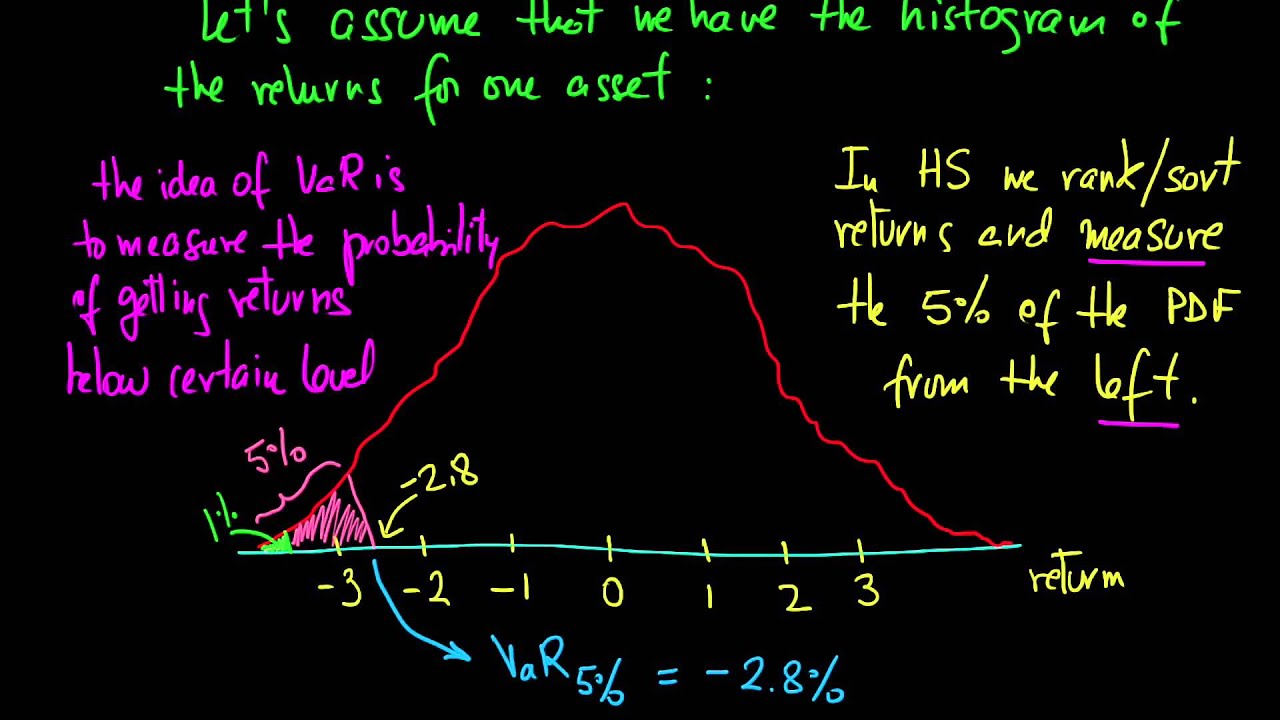 let's assume that we have the histogram of
the returns for one asset :
the idea of VaR is
to measure the probability
of getting returns
below certain level
In HS we rank/sort
returns and measure
the 5% of the PDF
from the left.
5%
-2.8
1%
-3 -2 -1 0 1 2 3
return
VaR5% = -2.8%